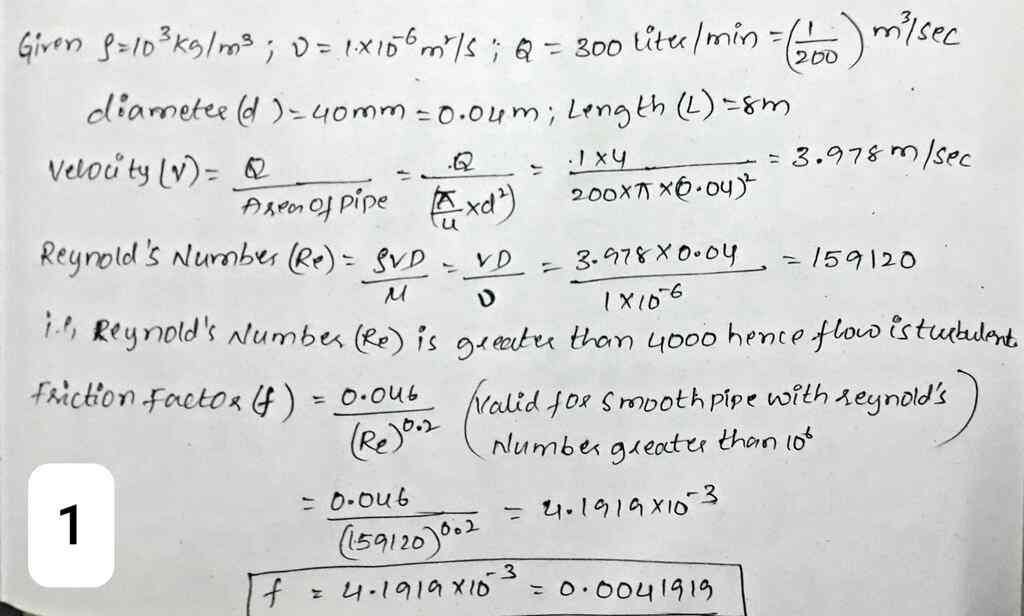 Given ρ=10³kg/m³ ; ν = 1×10⁻⁶m²/s ; Q = 300 liter/min = (1/200) m³/sec
diameter (d) = 40mm = 0.04m ; Length (L) = 8m
Velocity (V) = Q/Area of pipe = Q/(π/4 xd²) = 1x4/200×π×(0.04)² = 3.978 m/sec
Reynold's Number (Re) = ρVD/μ = VD/ν = 3.978×0.04/1×10⁻⁶ = 159120
i.e, Reynold's Number (Re) is greater than 4000 hence flow is turbulent
Friction Factor (f) = 0.046/(Re)^0.2 (Valid for smooth pipe with reynold's Number greater than 10⁶)
= 0.046/(159120)^0.2 = 4.1919×10⁻³
f = 4.1919×10⁻³ = 0.0041919
1